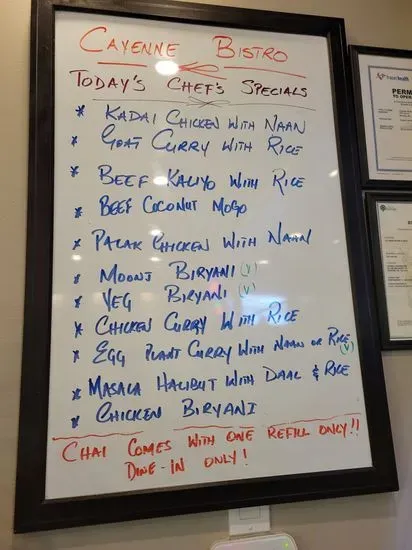 CAYENNE BISTRO
TODAY'S CHEF'S SPECIALS
* KADAI CHICKEN WITH NAAN
* GOAT CURRY WITH RICE
* BEEF KALIYO WITH RICE
* BEEF COCONUT MOGO
* PALAK CHICKEN WITH NAAN
* MOONJ BIRYANI (V)
* VEG BIRYANI (V)
* CHICKEN CURRY WITH RICE
* EGG PLANT CURRY WITH NAAN OR RICE (V)
* MASALA HALIBUT WITH DAAL & RICE
* CHICKEN BIRYANI
CHAI COMES WITH ONE REFILL ONLY!!
DINE-IN ONLY!
PERM
TO OPER